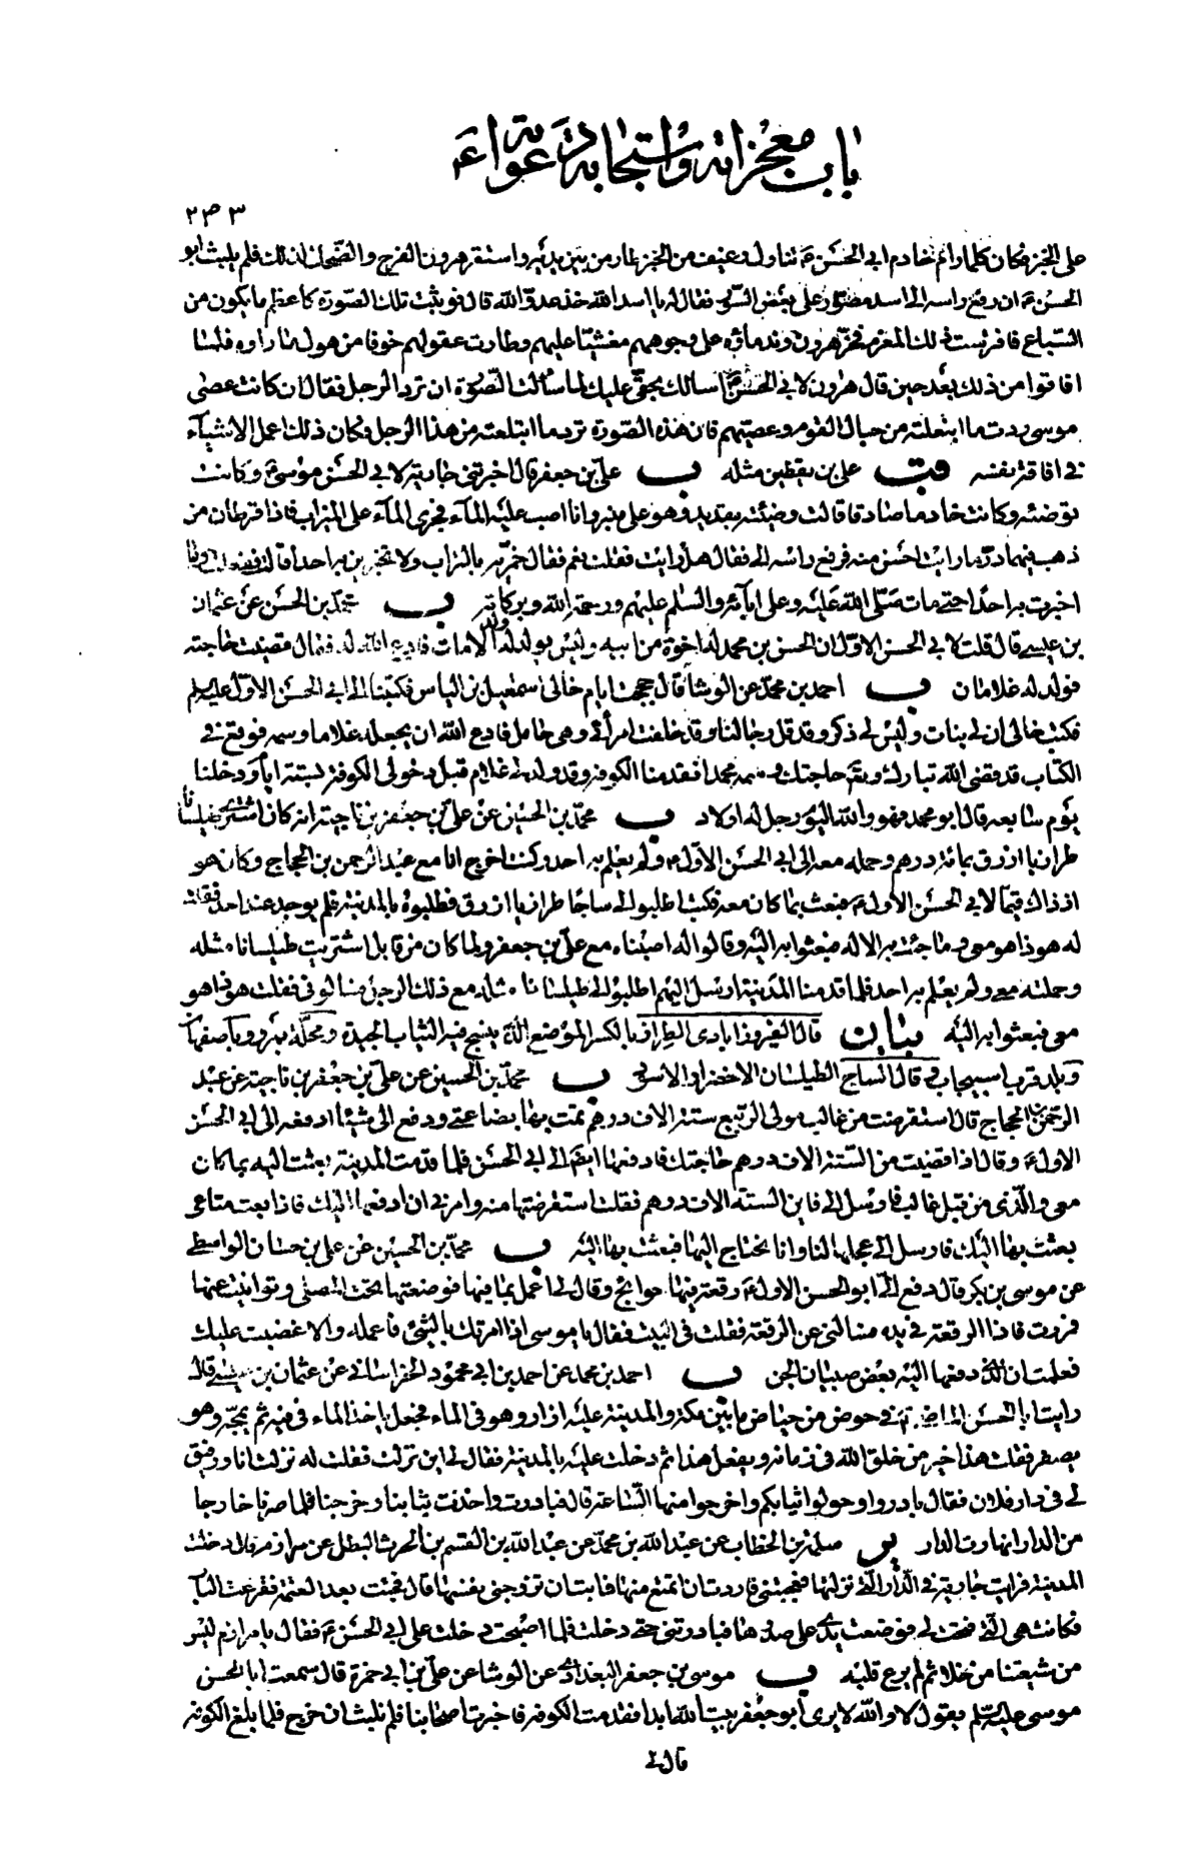 باب معجزاته واستجابة دعوته واء
٢٣٣
على الخبز فكان كلما رام خادم ابى الحسن ع تناول رغيف من الخبز طار من بين يديه واستفز هرون الفرح والضحك لذلك فلم يلبث ابو
الحسن ع ان رفع راسه الى اسد مصور على بعض الستور فقال له يا اسد الله خذ عدو الله قال فوثبت تلك الصورة كاعظم ما يكون من
السباع فافترست ذلك المعزم فخر هرون وندماؤه على وجوههم مغشيا عليهم وطارت عقولهم خوفا من هول ما راوه فلما
افاقوا من ذلك بعد حين قال هرون لابى الحسن ع اسالك بحقى عليك لما سالت الصورة ان ترد الرجل فقال ان كانت عصى
موسى ردت ما ابتلعته من حبال القوم وعصيهم فان هذه الصورة ترد ما ابتلعته من هذا الرجل فكان ذلك اعمل الاشياء
فى افاقة نفسه قب على بن يقطين مثله ب على بن جعفر قال اخبرتنى جارية لابى الحسن موسى ع وكانت
توضئه وكانت خادما صادقا قالت وضئته بقديد وهو على منبر وانا اصب عليه الماء فجرى الماء على الميزاب فاذا قرطان من
ذهب فيهما در ما رايت احسن منه فرفع راسه الى فقال هل رايت فقلت نعم فقال خمريه بالتراب ولا تخبرين به احدا قالت ففعلت وما
اخبرت به احدا حتى مات صلى الله عليه وعلى ابائه والسلم عليهم ورحمة الله وبركاته ب محمد بن الحسن عن عثمان
بن عيسى قال قلت لابى الحسن الاول ان الحسن بن محمد له اخوة من ابيه وليس يولد له ولد الا مات فادع الله له فقال قضيت حاجته
فولد له غلامان ب احمد بن محمد عن الوشا قال حججت ايام خالى اسمعيل بن الياس فكتبنا الى ابى الحسن الاول عليه السلم
فكتب خالى ان لى بنات وليس لى ذكر وقد قل رجالنا وقد خلفت امرأتى وهى حامل فادع الله ان يجعله غلاما وسمه فوقع فى
الكتاب قد قضى الله تبارك وتعالى حاجتك وسمه محمدا فقدمنا الكوفة وقد ولد لى غلام قبل دخولى الكوفة بستة ايام ودخلنا
يوم سابعه قال ابو محمد فهو والله اليوم رجل له اولاد ب محمد بن الحسين عن على بن جعفر بن ناجية انه كان اشترى طيلسانا
طرازيا ازرق بمائة درهم وحمله معه الى ابى الحسن الاول ع ولم يعلم به احد وكنت اخرج انا مع عبد الرحمن بن الحجاج وكان هو
اذ ذاك قيما لابى الحسن الاول ع فبعث بما كان معه فكتب اطلبوا لى ساجا طرازيا ازرق فطلبوه بالمدينة فلم يوجد عند احد فقلت
له هوذا هو معى وما جئت به الا له فبعثوا به اليه وقالوا له اصبناه مع على بن جعفر ولما كان من قابل اشتريت طيلسانا مثله
وحملته معى ولم يعلم به احد فلما قدمنا المدينة ارسل اليهم اطلبوا لى طيلسانا مثله مع ذلك الرجل فسالونى فقلت هوذا هو
معى فبعثوا به اليه بيان قال الفيروزابادى الطراز بالكسر الموضع الذى ينسج فيه الثياب الجيدة ومحلة بمرو وباصفهان
وبلد قرب اسبيجاب وقال الساج الطيلسان الاخضر او الاسود ب محمد بن الحسين عن على بن جعفر بن ناجية عن عبد
الرحمن بن الحجاج قال استقرضت من غالب مولى الربيع ستة الاف درهم تمت بها بضاعتى ودفع الى شيئا ادفعه الى ابى الحسن
الاول ع وقال اذا قضيت من الستة الاف درهم حاجتك فادفعها ايضا الى ابى الحسن فلما قدمت المدينة بعثت اليه بما كان
معى والذى من قبل غالب فارسل الى فاين الستة الاف درهم فقلت استقرضتها منه وامرنى ان ادفعها اليك فاذا بعت متاعى
بعثت بها اليك فارسل الى عجلها لنا وانا نحتاج اليها فبعثت بها اليه ب محمد بن الحسين عن على بن حسان الواسطى
عن موسى بن بكر قال دفع الى ابو الحسن الاول ع رقعة فيها حوائج وقال لى اعمل بما فيها فوضعتها تحت المصلى وتوانيت عنها
فمررت فاذا الرقعة فى يده فسالنى عن الرقعة فقلت فى البيت فقال يا موسى اذا امرتك بالشئ فاعمله والا غضبت عليك
فعلمت ان الذى دفعها اليه بعض صبيان الجن ب احمد بن محمد عن احمد بن ابى محمود الخراسانى عن عثمان بن عيسى قال
رايت ابا الحسن الماضى ع فى حوض من حياض ما بين مكة والمدينة عليه ازار وهو فى الماء فجعل ياخذ الماء فى فيه ثم يمجه وهو
يصفر فقلت هذا خير من خلق الله فى زمانه ويفعل هذا ثم دخلت عليه بالمدينة فقال لى اين نزلت فقلت له نزلت انا ورفيق
لى فى دار فلان فقال بادروا وحولوا ثيابكم واخرجوا منها الساعة قال فبادرت واخذت ثيابنا وخرجنا فلما صرنا خارجا
من الدار انهارت الدار ير سلمة بن الخطاب عن عبد الله بن محمد عن عبد الله بن القسم بن الحرث البطل عن مرازم قال دخلت
المدينة فرايت جارية فى الدار التى نزلتها فعجبتنى فاردت ان اتمتع منها فابت ان تزوجنى نفسها قال فجئت بعد العتمة فقرعت الباب
فكانت هى التى فتحت لى فوضعت يدى على صدرها فبادرتنى حتى دخلت فلما اصبحت دخلت على ابى الحسن ع فقال يا مرازم ليس
من شيعتنا من خلا ثم لم يرع قلبه ب موسى بن جعفر البغدادى عن الوشا عن على بن ابى حمزة قال سمعت ابا الحسن
موسى عليه السلم يقول لا والله لا يرى ابو جعفر بيت الله ابدا فقدمت الكوفة فاخبرت اصحابنا فلم نلبث ان خرج فلما بلغ الكوفة
قال لى